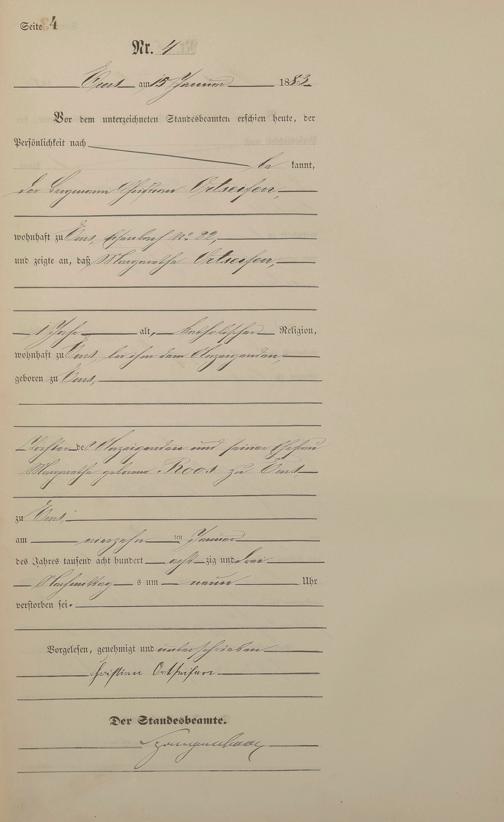 Seite 4
Nr. 4
Ems am 15 Januar 1883
Vor dem unterzeichneten Standesbeamten erschien heute, der
Persönlichkeit nach
be kannt,
der Bergmann Christian
wohnhaft zu Ems, No. 22,
und zeigte an, daß Margaretha
1 Jahr alt, katholischer Religion,
wohnhaft zu Ems, bei ihm dem Anzeigenden,
geboren zu Ems,
Tochter des Anzeigenden und seiner Ehefrau
Margaretha geborne Roos zu Ems
zu Ems,
am vierzehn ten Januar
des Jahres tausend acht hundert acht zig und drei
Nachmittag s um neun Uhr
verstorben sei.
Vorgelesen, genehmigt und unterschrieben
Christian
Der Standesbeamte.